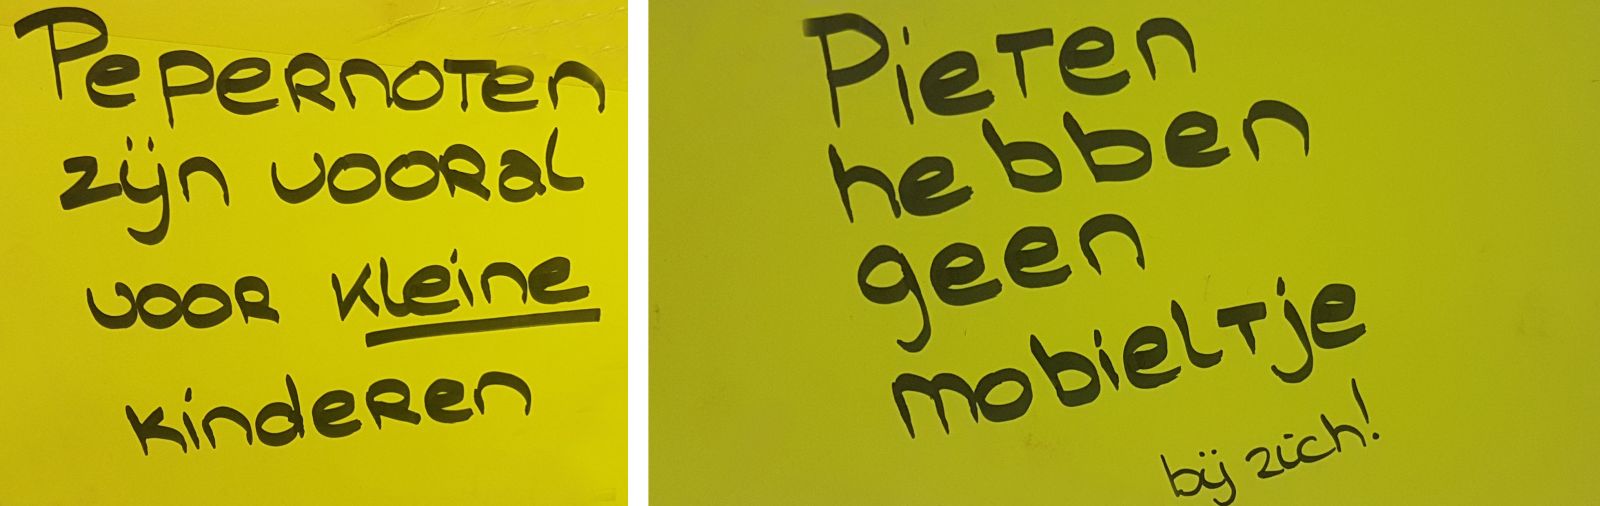 Pepernoten
zijn vooral
voor kleine
kinderen
Pieten
hebben
geen
mobieltje
bij zich!